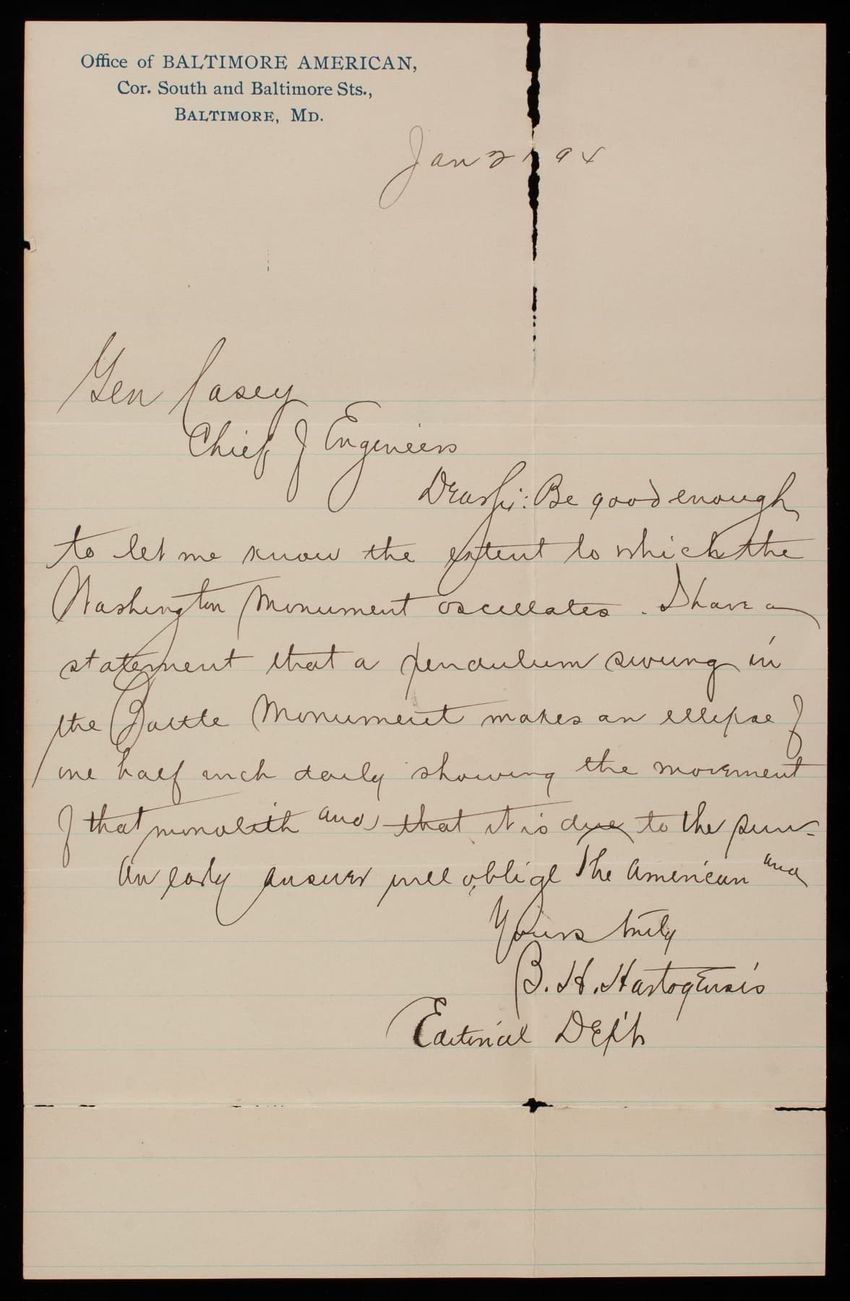 Office of BALTIMORE AMERICAN,
Cor. South and Baltimore Sts.,
BALTIMORE, MD.
Jan 94
Gen Casey
Chief of Engineers
Dear Sir: Be good enough
to let me know the extent to which the
Washington Monument oscillates. I have a
statement that a pendulum swung in
the Battle Monument makes an ellipse of
one half inch daily showing the movement
of that monolith and that it is due to the sun.
An early answer will oblige The American and
Yours truly
B. H. Hartogensis
Editorial Dep't